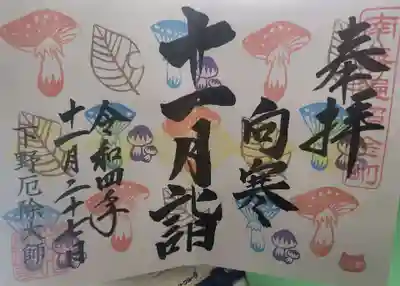 奉拝
向寒
十一月詣
令和四年
十一月二十七日
下野厄除大師